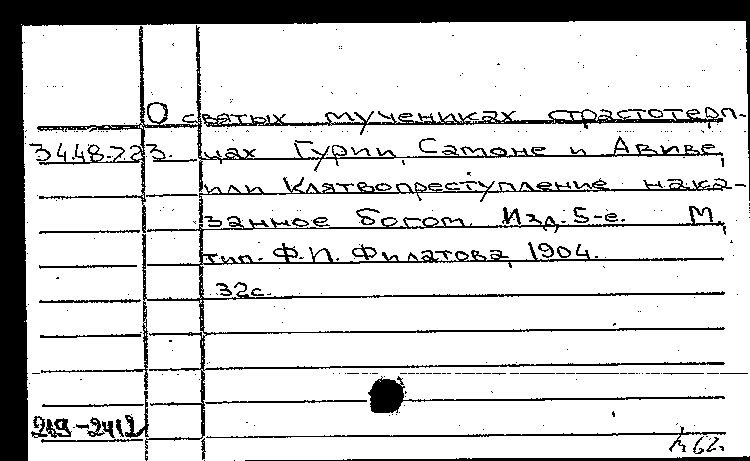 О святых мучениках страстотерп-
34.48.723. цах Гурии, Самоне и Авиве,
или Клятвопреступление нака-
занное богом. Изд. 5-е. М.,
тип. Ф.П. Филатова, 1904.
32с.
-2412